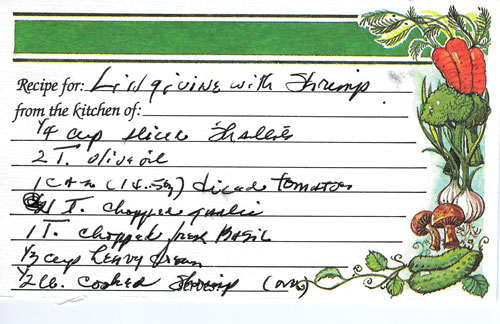 Recipe for: Linguine with Shrimp
from the kitchen of:
1/4 cup slice Shallots
2 T. olive oil
1 can (14.5oz) diced tomatoes
1 T. chopped garlic
1 T. chopped fresh Basil
1/3 cup heavy cream
1/2 lb. cooked Shrimp